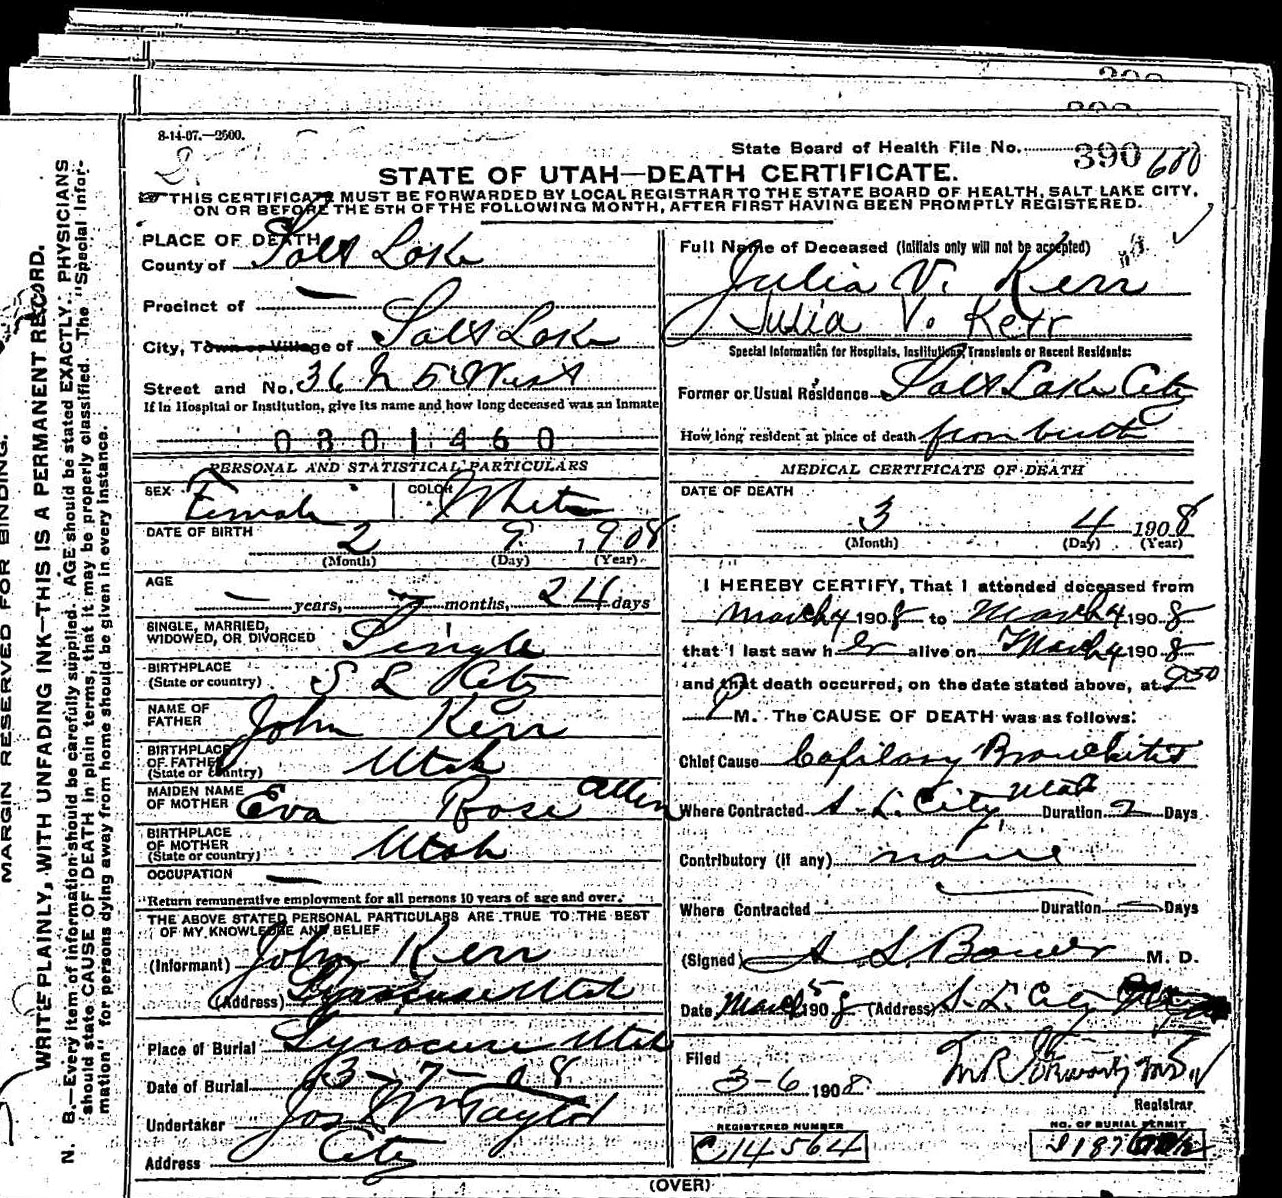 8-14-07.—2500.
State Board of Health File No. 390
STATE OF UTAH—DEATH CERTIFICATE.
THIS CERTIFICATE MUST BE FORWARDED BY LOCAL REGISTRAR TO THE STATE BOARD OF HEALTH, SALT LAKE CITY,
ON OR BEFORE THE 5TH OF THE FOLLOWING MONTH, AFTER FIRST HAVING BEEN PROMPTLY REGISTERED.
PLACE OF DEATH
County of Salt Lake
Precinct of —
City, Town or Village of Salt Lake
Street and No. 36 N 5 West
If in Hospital or Institution, give its name and how long deceased was an Inmate
0301460
PERSONAL AND STATISTICAL PARTICULARS
SEX Female COLOR White
DATE OF BIRTH 2 9 1908
(Month) (Day) (Year)
AGE — years, — months, 24 days
SINGLE, MARRIED,
WIDOWED, OR DIVORCED Single
BIRTHPLACE
(State or country) S L City
NAME OF
FATHER John Kerr
BIRTHPLACE
OF FATHER
(State or country) Utah
MAIDEN NAME
OF MOTHER Eva Rose Allen
BIRTHPLACE
OF MOTHER
(State or country) Utah
OCCUPATION —
Return remunerative employment for all persons 10 years of age and over.
THE ABOVE STATED PERSONAL PARTICULARS ARE TRUE TO THE BEST
OF MY KNOWLEDGE AND BELIEF
(Informant) John Kerr
(Address) Syracuse Utah
Place of Burial Syracuse Utah
Date of Burial 3-7-08
Undertaker Jos Wm Taylor
Address City
Full Name of Deceased (Initials only will not be accepted)
Julia V. Kerr
Julia V. Kerr
Special Information for Hospitals, Institutions, Transients or Recent Residents:
Former or Usual Residence Salt Lake City
How long resident at place of death from birth
MEDICAL CERTIFICATE OF DEATH
DATE OF DEATH
3 4 1908
(Month) (Day) (Year)
I HEREBY CERTIFY, That I attended deceased from
March 4 1908 to March 4 1908
that I last saw her alive on March 4 1908
and that death occurred, on the date stated above, at 950
P M. The CAUSE OF DEATH was as follows:
Chief Cause Capilary Bronchitis
Where Contracted S. L. City Utah Duration 2 Days
Contributory (if any) none
Where Contracted Duration — Days
(Signed) Bower M. D.
Date March 5 1908 (Address) S. L. City
Filed
3-6 1908
Registrar
REGISTERED NUMBER
C14564
NO. OF BURIAL PERMIT
(OVER)
MARGIN RESERVED FOR BINDING.
WRITE PLAINLY, WITH UNFADING INK—THIS IS A PERMANENT RECORD.
N. B.—Every item of information should be carefully supplied. AGE should be stated EXACTLY. PHYSICIANS
should state CAUSE OF DEATH in plain terms, that it may be properly classified. The "Special Infor-
mation" for persons dying away from home should be given in every instance.